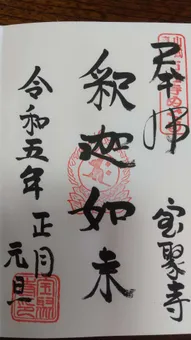 奉拝
宝聚寺
釈迦如来
令和五年 正月
元旦